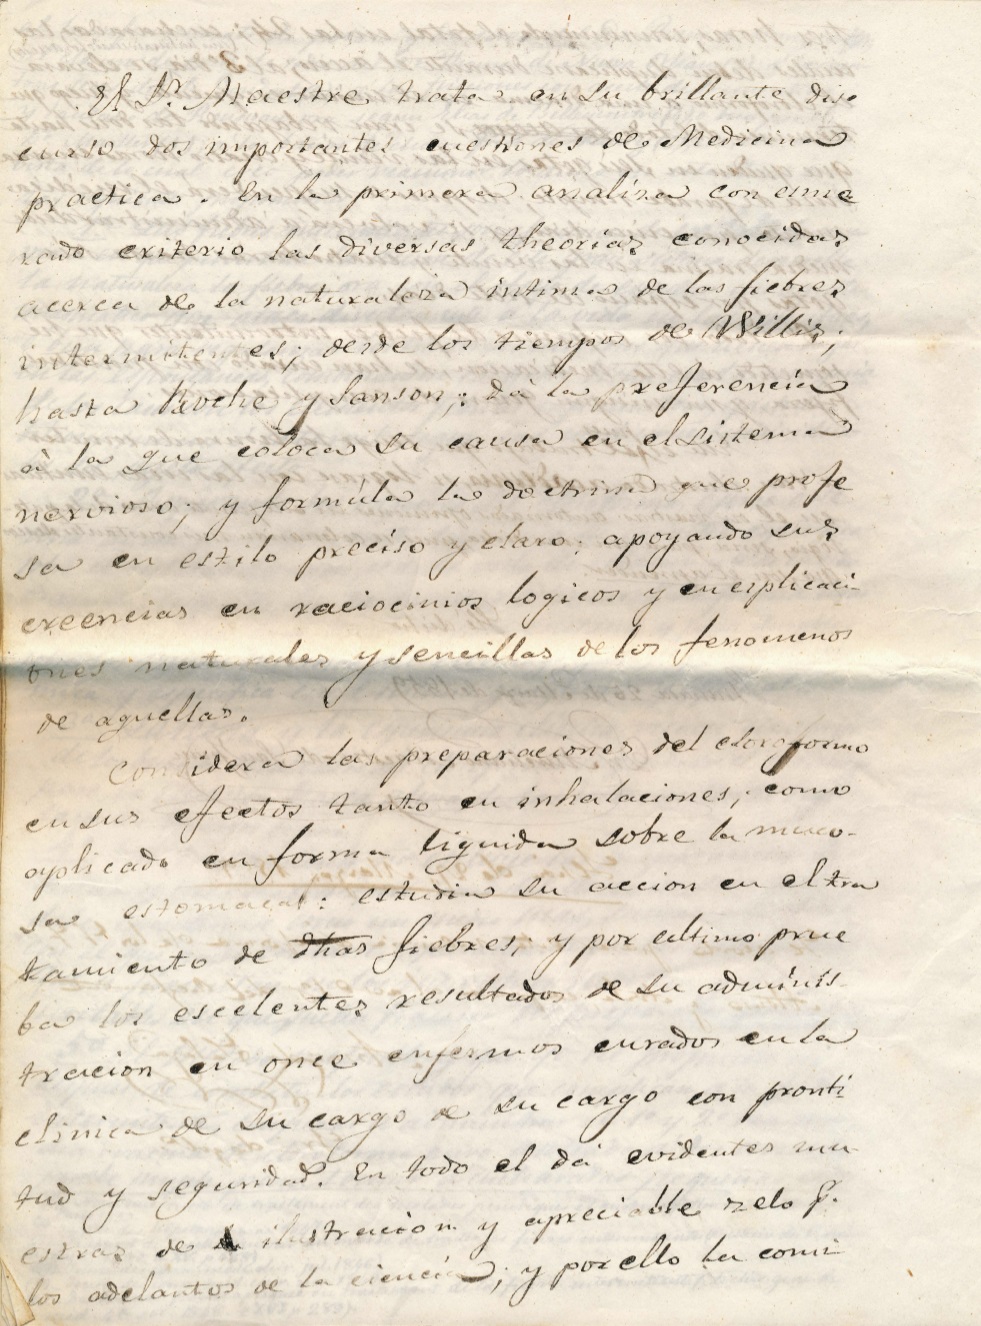 El Sr. Maestre trata en su brillante dis-
curso dos importantes cuestiones de Medicina
practica. En la primera analiza con esme
rado criterio las diversas theorias conocidas
acerca de la naturaleza intima de las fiebres
intermitentes; desde los tiempos de Willis;
hasta Roche y Sanson; dá la preferencia
à la que coloca su causa en el sistema
nervioso; y formúla la doctrina que profe
sa en estilo preciso y claro; apoyando sus
creencias en raciocinios logicos y en esplicaci-
ones naturales y sencillas de los fenomenos
de aquellas.
Considera las preparaciones del cloroformo
en sus efectos tanto en inhalaciones; como
aplicado en forma liquida sobre la muco-
sa estomacal: estudia su accion en el tra
tamiento de dhas fiebres; y por ultimo prue
ba los escelentes resultados de su adminis-
tracion en once enfermos curados en la
clinica de su cargo de su cargo con pronti
tud y seguridad. En todo el dá evidentes mu-
estras de ilustracion y apreciable zelo p.
los adelantos de la ciencia; y por ello la comi